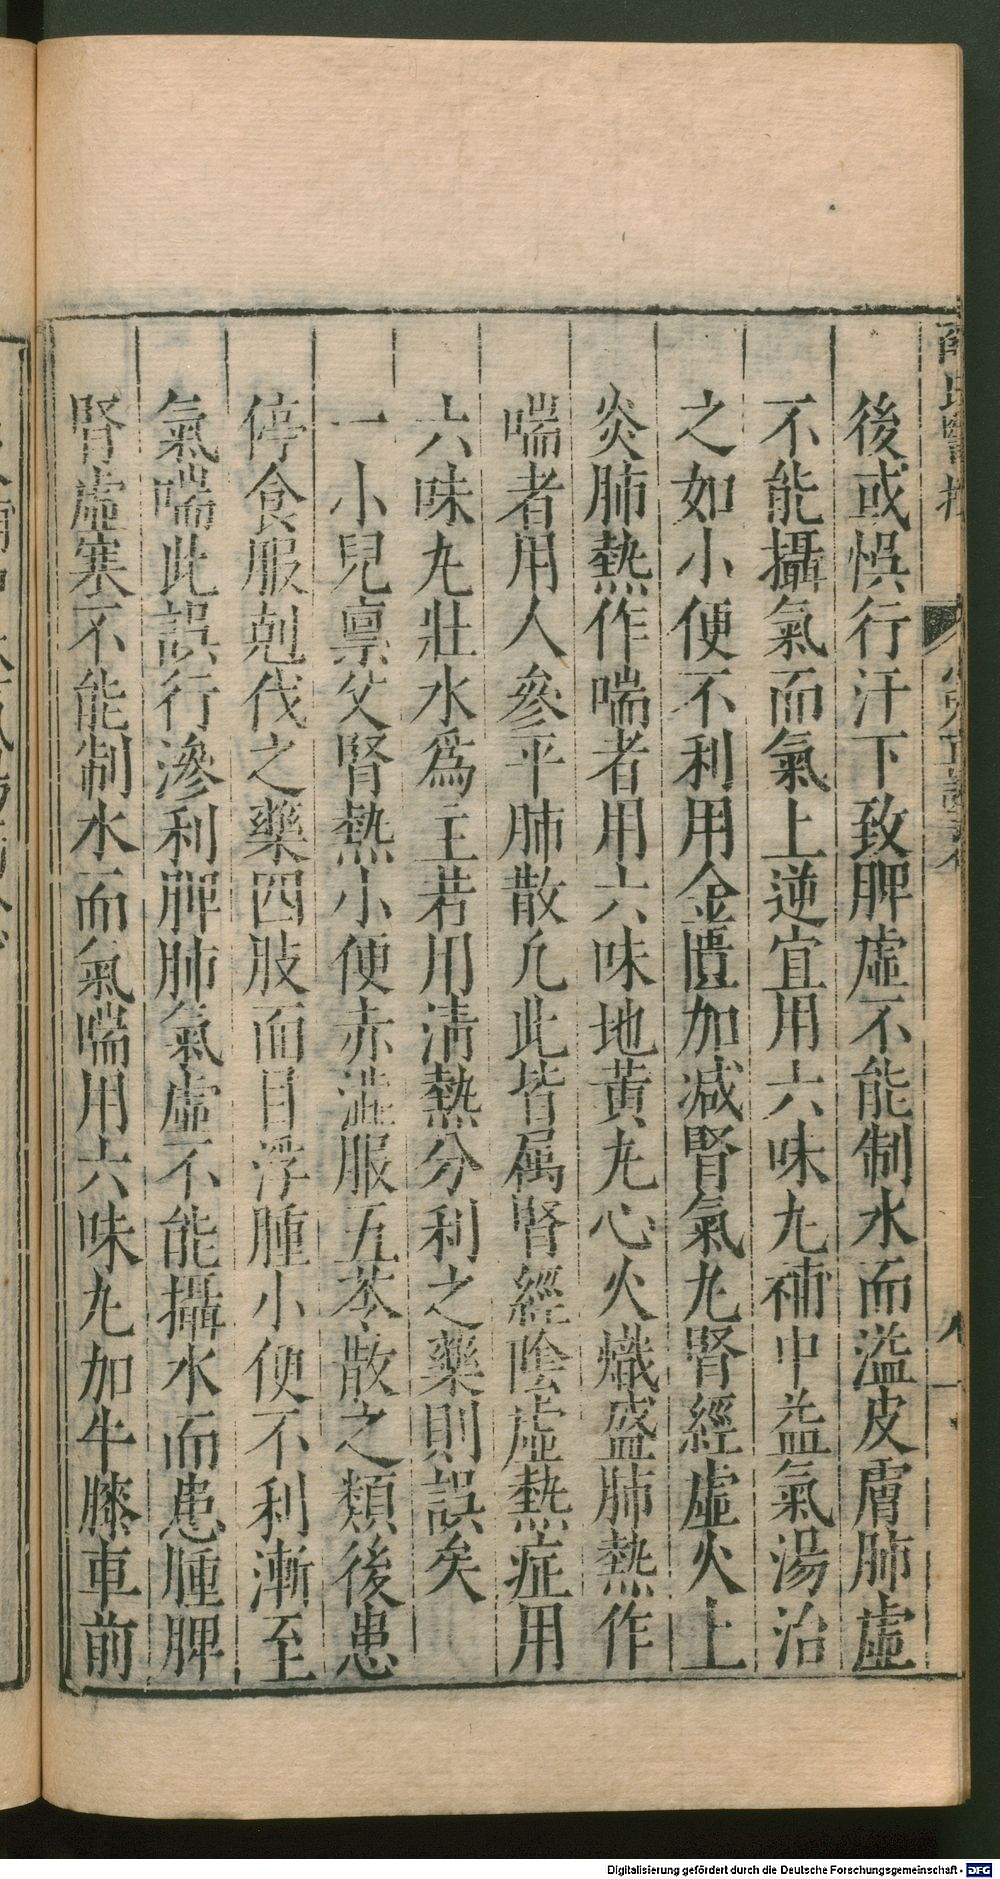 後或悞行汗下致脾虛不能制水而溢皮膚肺虛
不能攝氣而氣上逆宜用六味丸補中益氣湯治
之如小便不利用金匱加減腎氣丸腎經虛火上
炎肺熱作喘者用六味地黃丸心火熾盛肺熱作
喘者用人參平肺散凢此皆属腎經陰虛熱症用
六味丸壯水爲主若用清熱分利之藥則誤矣
一小兒禀父腎熱小便赤澁服五苓散之類後患
停食服剋伐之藥四肢面目浮腫小便不利漸至
氣喘此誤行滲利脾肺氣虛不能攝水而患腫脾
腎虛寒不能制水而氣喘用六味丸加牛膝車前
Digitalisierung gefördert durch die Deutsche Forschungsgemeinschaft - DFG